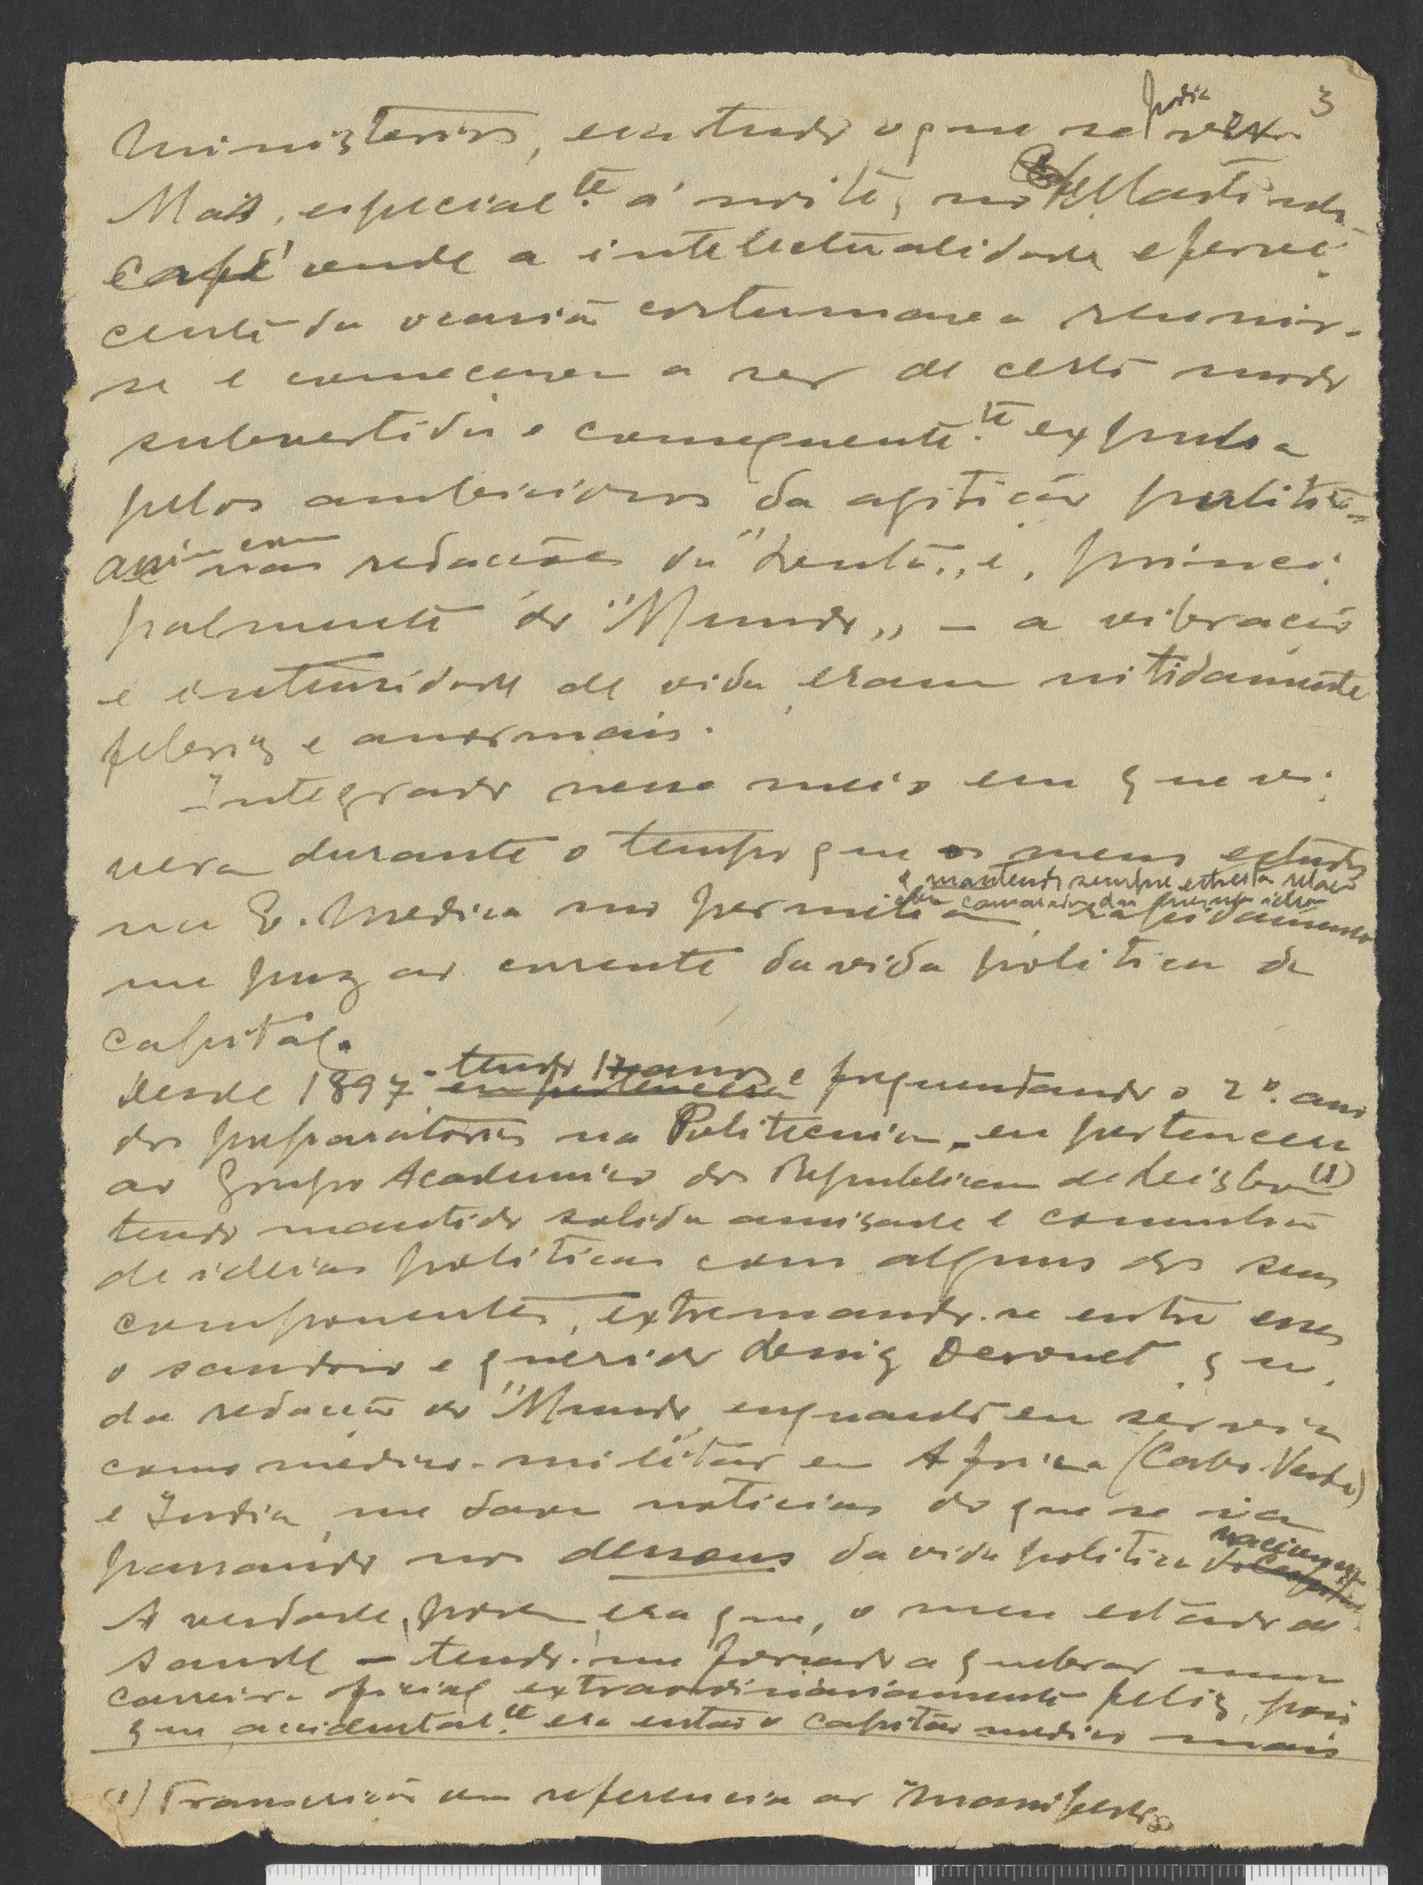 3
Ministerios, era tudo o que se podia ver.
Mas, especialte. á noite, no Martinho
Café onde a intelectualidade eferves-
cente da ocasião costumava reunir-
se e começava a ser de certo modo
subvertida e consequentete. expulsa
pelos ambiciosos da agitação politica -
assim como nas redacções da "Lucta" e, princi-
palmente do "Mundo" - a vibração
e intensidade de vida eram nitidamente
febris e anormais.
Integrado nesse meio em que vi-
vera durante o tempo que os meus estudos
na E. Medica mo permitiam e mantendo sempre estreita relação
com camaradas da mesma ideia rapidamente
me puz ao corrente da vida politica da
capital.
Desde 1897 - tendo 17 anos e frequentando o 2º. ano
dos preparatorios na Politecnica - eu pertencera
ao Grupo Academico dos Republicanos de Lisboa (1)
tendo mantido solida amisade e comunhão
de ideias politicas com alguns dos seus
componentes, extremando-se entre esses
o saudoso e querido Luiz Derouet que,
da redacção do "Mundo", enquanto eu servia
como medico-militar em Africa (Cabo-Verde)
e India, me dava noticias do que se ia
passando nos dessous da vida politica nacional.
A verdade, porem, era que, o meu estado de
saude - tendo-me forçado a quebrar uma
carreira oficial extraordinariamente feliz, pois
que accidentalte. era então o capitão medico mais
(1) Transcrição em referencia ao "Manifesto"